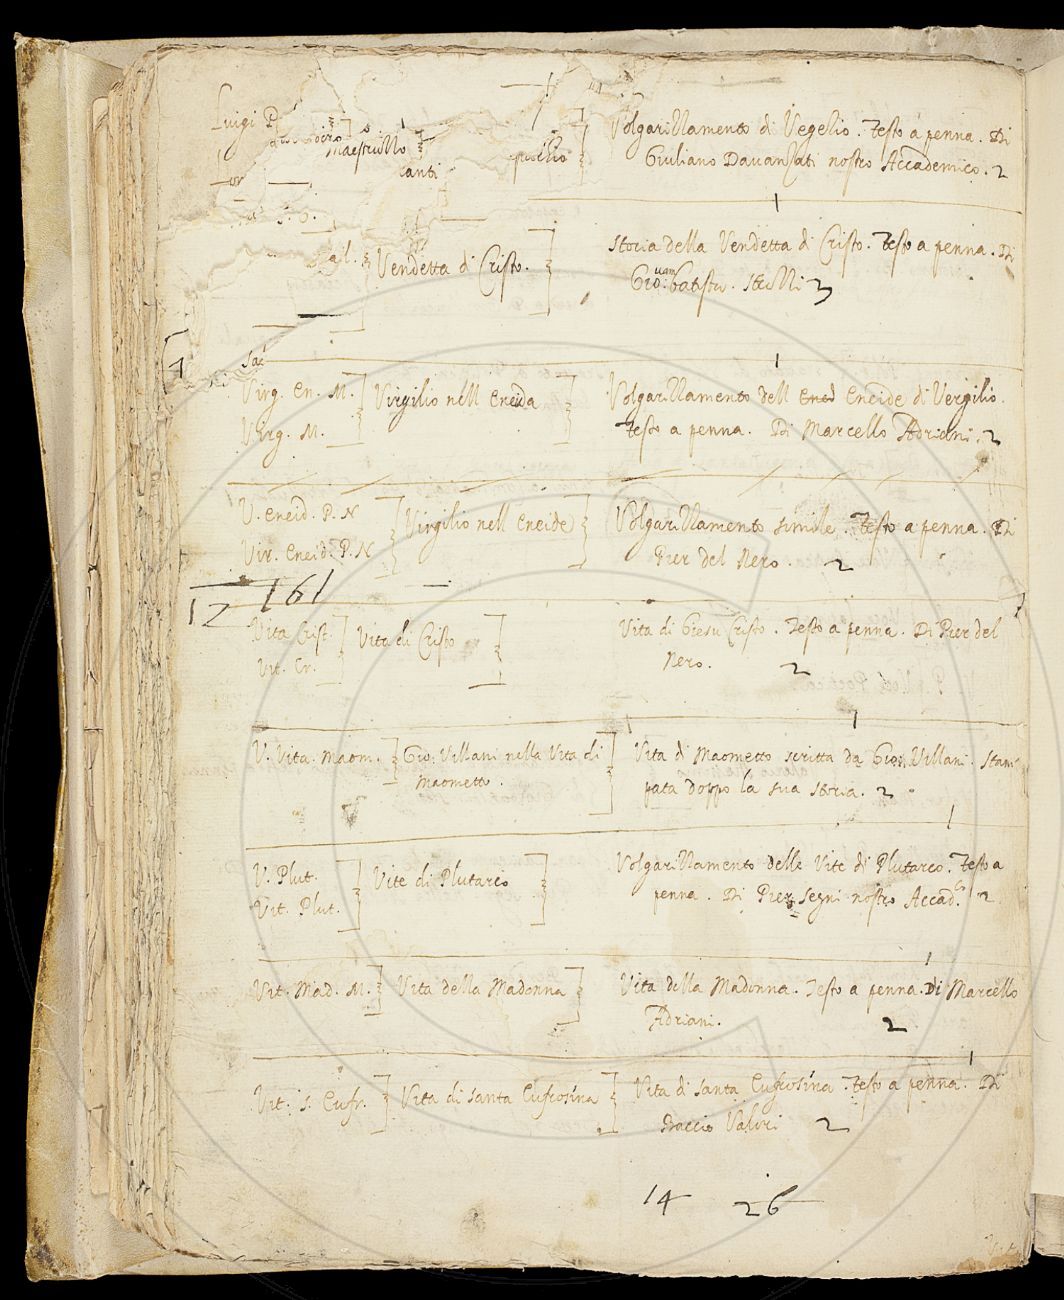 Luigi P
Maestruzzo
canti
Volgarizzamento di Vegezio. Testo a penna. Di
Giuliano Davanzati nostro Accademico. 2
1
Vendetta di Cristo.
Storia della Vendetta di Cristo. Testo a penna. Di
Giovam Batista Strozzi 2
1
Virg. En. M. Virgilio nell Eneida Volgarizzamento dell Ened Eneide di Vergilio.
Virg. M. Testo a penna. Di Marcello Adriani. 2
V. Eneid. P. N Virgilio nell Eneide Volgarizzamento simile. Testo a penna. Di
Vir. Eneid. P. N Pier del Nero. 2
17 161
Vita Crist. Vita di Cristo Vita di Giesu Cristo. Testo a penna. Di Pier del
Vit. Cr. Nero. 2
1 1
V. Vita. Maom. Gio. Villani nella Vita di Vita di Maometto scritta da Gio. Villani. Stam
Maometto. pata doppo la sua storia. 2
1
V. Plut. Vite di Plutarco Volgarizzamento delle Vite di Plutarco. Testo a
Vit. Plut. penna. Di Pier Segni nostro Accad.co 2
1
Vit. Mad. M. Vita della Madonna Vita della Madonna. Testo a penna. Di Marcello
Adriani. 2
1
Vit. s. Eufr. Vita di santa Eufrosina Vita di santa Eufrosina. Testo a penna. Di
Baccio Valori 2
14 26